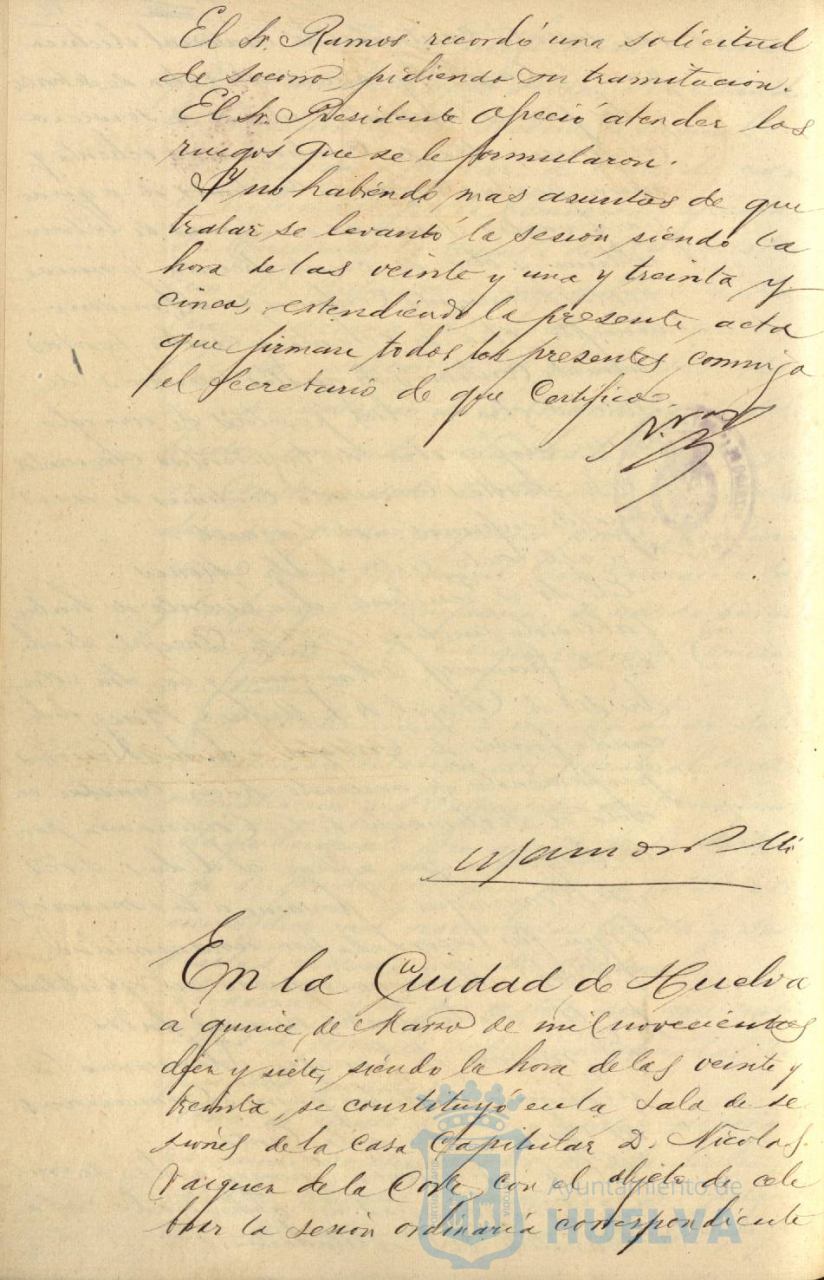 El Sr. Ramos recordó una solicitud
de socorro, pidiendo su tramitacion.
El Sr. Presidente ofreció atender los
ruegos que se le formularon.
Y no habiendo mas asuntos de que
tratar se levantó la sesión siendo la
hora de las veinte y una y treinta y
cinco, estendiendo la presente acta
que firman todos los presentes conmigo
el Secretario de que Certifico.
En la Ciudad de Huelva
á quince de Marzo de mil novecientos
diez y siete, siendo la hora de las veinte y
treinta, se constituyó en la Sala de se
siónes de la Casa Capitular D. Nicolas
Vazquez de la Corte con el objeto de cele
brar la sesión ordinaria correspondiente
Ayuntamiento de
HUELVA